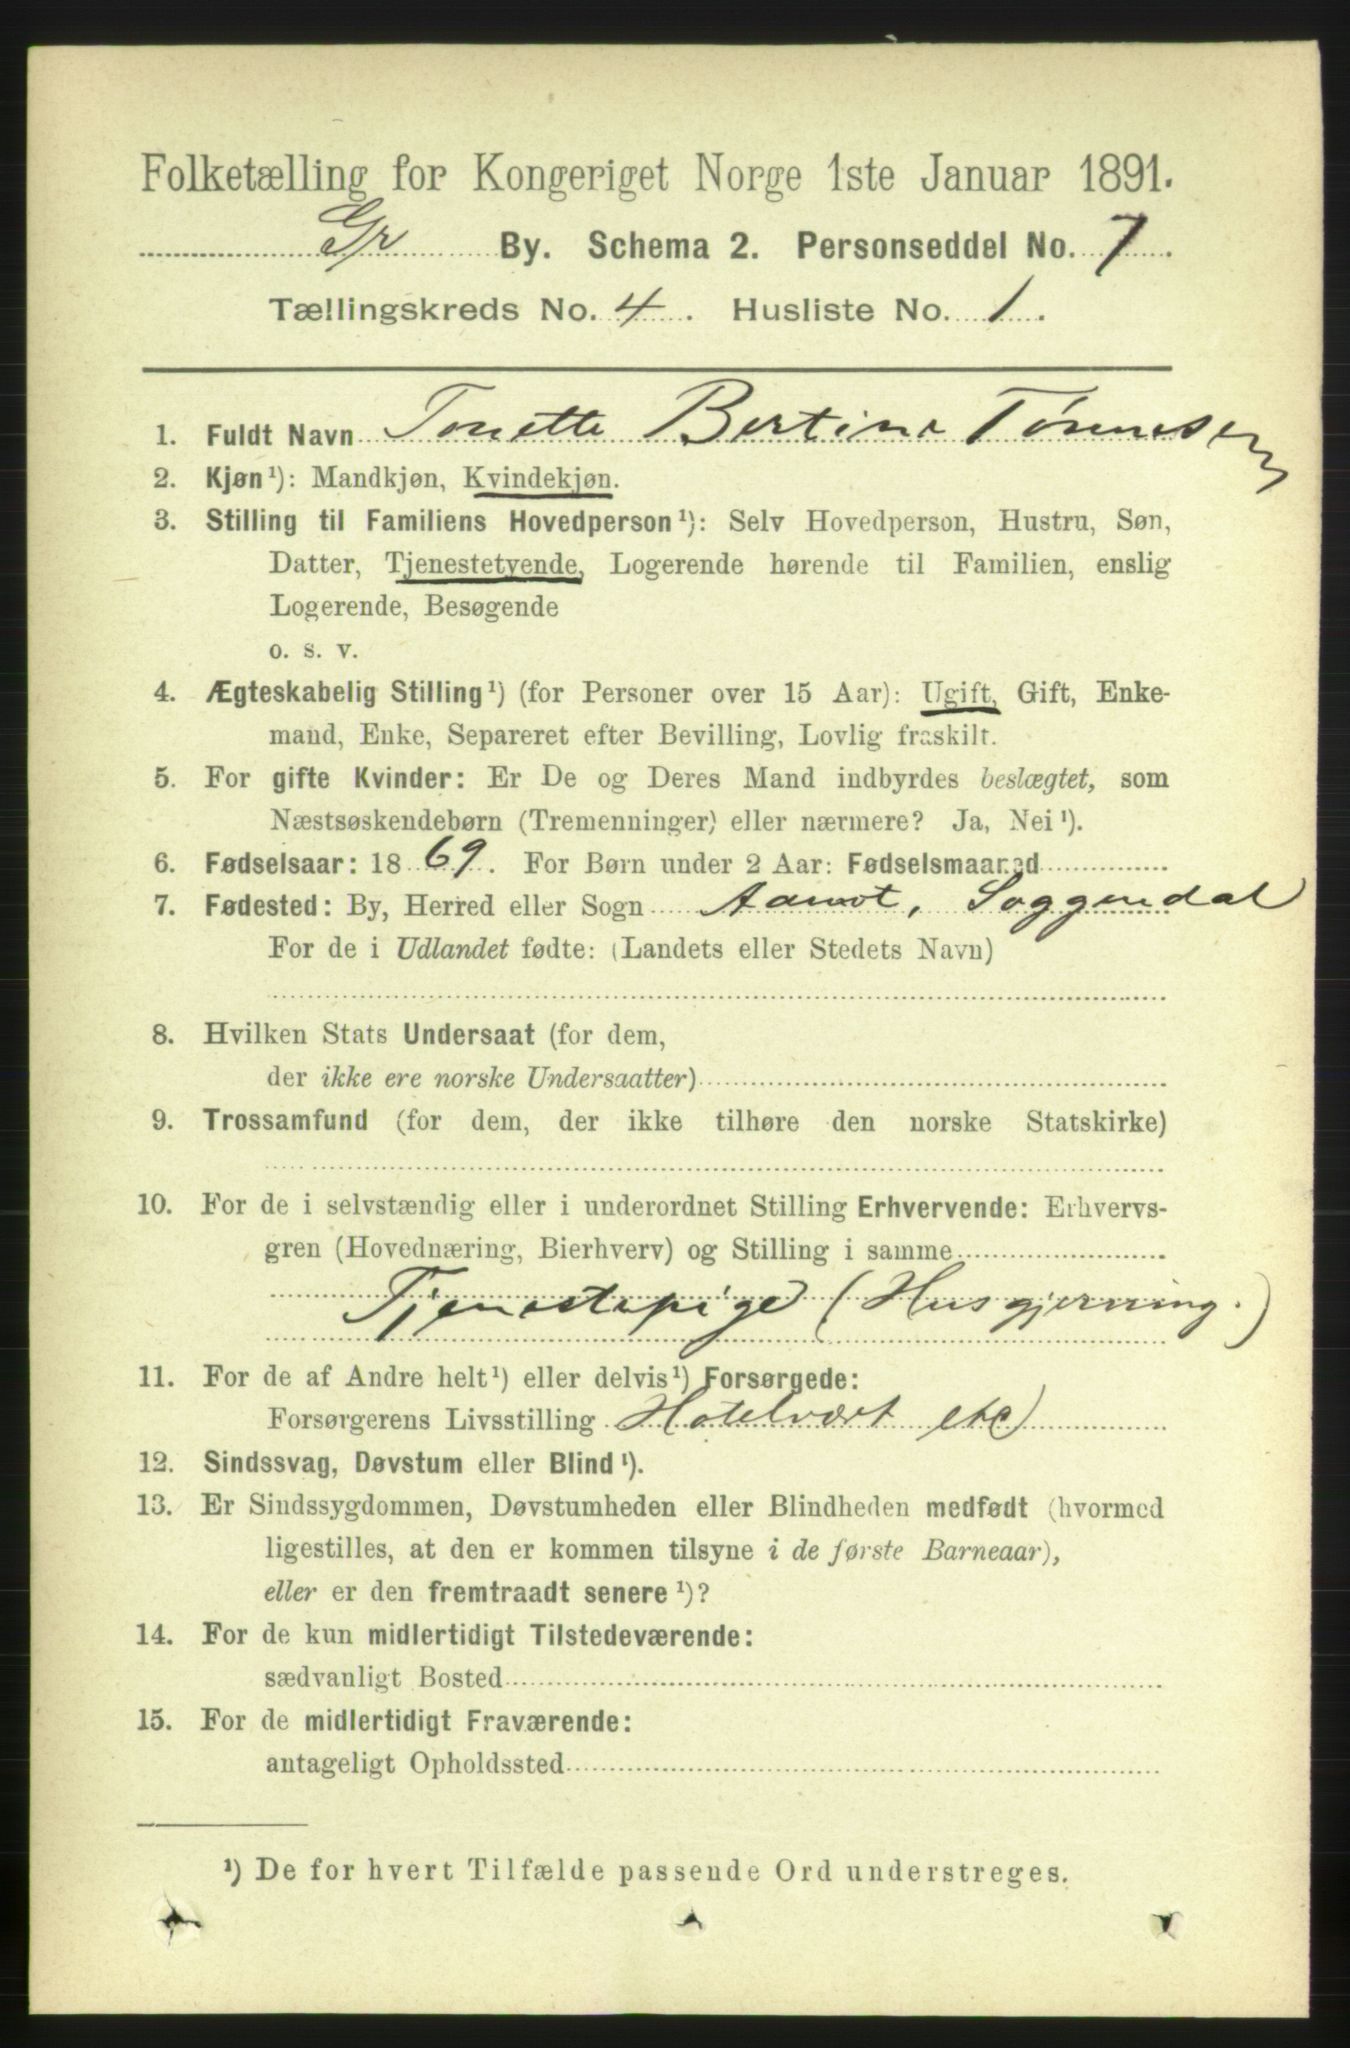 Folketælling for Kongeriget Norge 1ste Januar 1891.
Gr By. Schema 2. Personseddel No. 7
Tællingskreds No. 4. Husliste No. 1.
1. Fuldt Navn Tonette Bertine Tønnesen
2. Kjøn¹): Mandkjøn, Kvindekjøn.
3. Stilling til Familiens Hovedperson¹): Selv Hovedperson, Hustru, Søn,
Datter, Tjenestetyende, Logerende hørende til Familien, enslig
Logerende, Besøgende
o. s. v.
4. Ægteskabelig Stilling¹) (for Personer over 15 Aar): Ugift, Gift, Enke-
mand, Enke, Separeret efter Bevilling, Lovlig fraskilt.
5. For gifte Kvinder: Er De og Deres Mand indbyrdes beslægtet, som
Næstsøskendebørn (Tremenninger) eller nærmere? Ja, Nei¹).
6. Fødselsaar: 1869. For Børn under 2 Aar: Fødselsmaaned
7. Fødested: By, Herred eller Sogn Aamot, Soggendal
For de i Udlandet fødte: (Landets eller Stedets Navn)
8. Hvilken Stats Undersaat (for dem,
der ikke ere norske Undersaatter)
9. Trossamfund (for dem, der ikke tilhøre den norske Statskirke)
10. For de i selvstændig eller i underordnet Stilling Erhvervende: Erhvervs-
gren (Hovednæring, Bierhverv) og Stilling i samme
Tjenestepige (Husgjerning.)
11. For de af Andre helt¹) eller delvis¹) Forsørgede:
Forsørgerens Livsstilling Hotelvært etc
12. Sindssvag, Døvstum eller Blind¹).
13. Er Sindssygdommen, Døvstumheden eller Blindheden medfødt (hvormed
ligestilles, at den er kommen tilsyne i de første Barneaar),
eller er den fremtraadt senere¹)?
14. For de kun midlertidigt Tilstedeværende:
sædvanligt Bosted
15. For de midlertidigt Fraværende:
antageligt Opholdssted
¹) De for hvert Tilfælde passende Ord understreges.